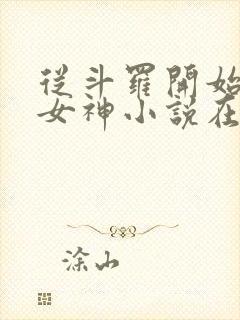 從斗羅開始
女神小說在
涂山